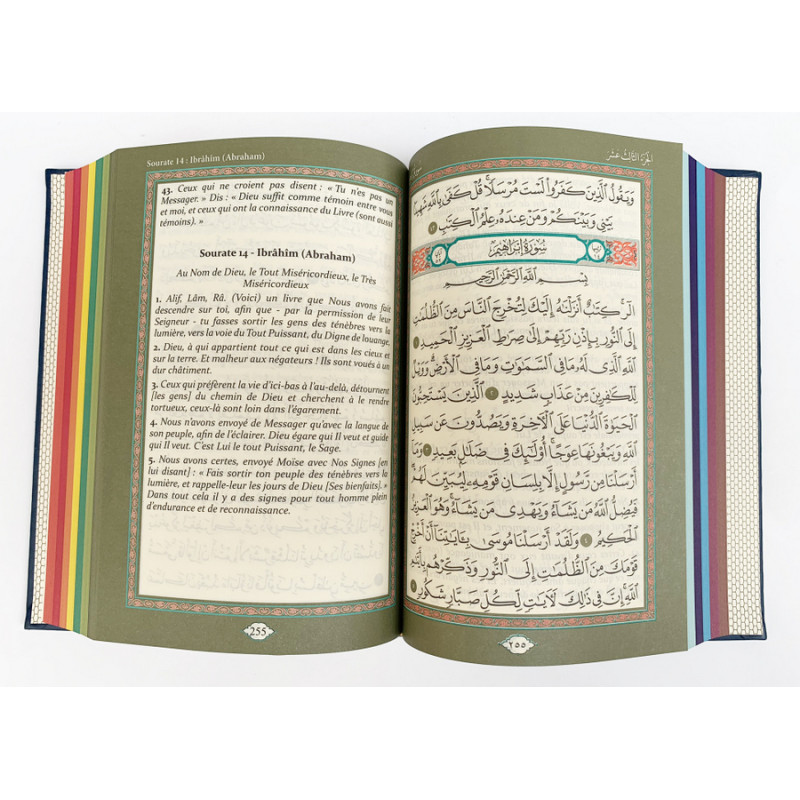 Sourate 14 : Ibrâhîm (Abraham)
43. Ceux qui ne croient pas disent : « Tu n'es pas un
Messager. » Dis : « Dieu suffit comme témoin entre vous
et moi, et ceux qui ont la connaissance du Livre (sont aussi
témoins). »
Sourate 14 - Ibrâhîm (Abraham)
Au Nom de Dieu, le Tout Miséricordieux, le Très
Miséricordieux
1. Alif, Lâm, Râ. (Voici) un livre que Nous avons fait
descendre sur toi, afin que - par la permission de leur
Seigneur - tu fasses sortir les gens des ténèbres vers la
lumière, vers la voie du Tout Puissant, du Digne de louange.
2. Dieu, à qui appartient tout ce qui est dans les cieux et
sur la terre. Et malheur aux négateurs ! Ils sont voués à un
dur châtiment.
3. Ceux qui préfèrent la vie d'ici-bas à l'au-delà, détournent
[les gens] du chemin de Dieu et cherchent à le rendre
tortueux, ceux-là sont loin dans l'égarement.
4. Nous n'avons envoyé de Messager qu'avec la langue de
son peuple, afin de l'éclairer. Dieu égare qui Il veut et guide
qui Il veut. C'est Lui le tout Puissant, le Sage.
5. Nous avons certes, envoyé Moïse avec Nos Signes [en
lui disant] : « Fais sortir ton peuple des ténèbres vers la
lumière, et rappelle-leur les jours de Dieu [Ses bienfaits]. »
Dans tout cela il y a des signes pour tout homme plein
d'endurance et de reconnaissance.
255
الجزء الثالث عشر
وَيَقُولُ ٱلَّذِينَ كَفَرُوا۟ لَسْتَ مُرْسَلًا قُلْ كَفَىٰ بِٱللَّهِ شَهِيدًۢا
بَيْنِى وَبَيْنَكُمْ وَمَنْ عِندَهُۥ عِلْمُ ٱلْكِتَٰبِ
سُورَةُ إِبْرَاهِيمَ
بِسْمِ ٱللَّهِ ٱلرَّحْمَٰنِ ٱلرَّحِيمِ
الٓر كِتَٰبٌ أَنزَلْنَٰهُ إِلَيْكَ لِتُخْرِجَ ٱلنَّاسَ مِنَ ٱلظُّلُمَٰتِ
إِلَى ٱلنُّورِ بِإِذْنِ رَبِّهِمْ إِلَىٰ صِرَٰطِ ٱلْعَزِيزِ ٱلْحَمِيدِ ١
ٱللَّهِ ٱلَّذِى لَهُۥ مَا فِى ٱلسَّمَٰوَٰتِ وَمَا فِى ٱلْأَرْضِ وَوَيْلٌ
لِّلْكَٰفِرِينَ مِنْ عَذَابٍ شَدِيدٍ ٢ ٱلَّذِينَ يَسْتَحِبُّونَ
ٱلْحَيَوٰةَ ٱلدُّنْيَا عَلَى ٱلْءَاخِرَةِ وَيَصُدُّونَ عَن سَبِيلِ
ٱللَّهِ وَيَبْغُونَهَا عِوَجًا أُو۟لَٰٓئِكَ فِى ضَلَٰلٍۭ بَعِيدٍ ٣ وَمَآ
أَرْسَلْنَا مِن رَّسُولٍ إِلَّا بِلِسَانِ قَوْمِهِۦ لِيُبَيِّنَ لَهُمْ
فَيُضِلُّ ٱللَّهُ مَن يَشَآءُ وَيَهْدِى مَن يَشَآءُ وَهُوَ ٱلْعَزِيزُ
ٱلْحَكِيمُ ٤ وَلَقَدْ أَرْسَلْنَا مُوسَىٰ بِـَٔايَٰتِنَآ أَنْ أَخْرِجْ
قَوْمَكَ مِنَ ٱلظُّلُمَٰتِ إِلَى ٱلنُّورِ وَذَكِّرْهُم بِأَيَّىٰمِ
ٱللَّهِ إِنَّ فِى ذَٰلِكَ لَءَايَٰتٍ لِّكُلِّ صَبَّارٍ شَكُورٍ ٥
٢٥٥